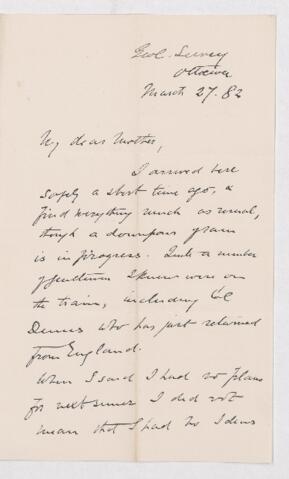 Geol. Survey
Ottawa
March 27. 82
My dear Mother,
I arrived here
safely a short time ago, &
find everything much as usual,
though a downpour of rain
is in progress. Quite a number
of gentlemen I knew were on
the train, including Col
Dennis who has just returned
from England.
When I said I had no plans
for next summer I did not
mean that I had no ideas